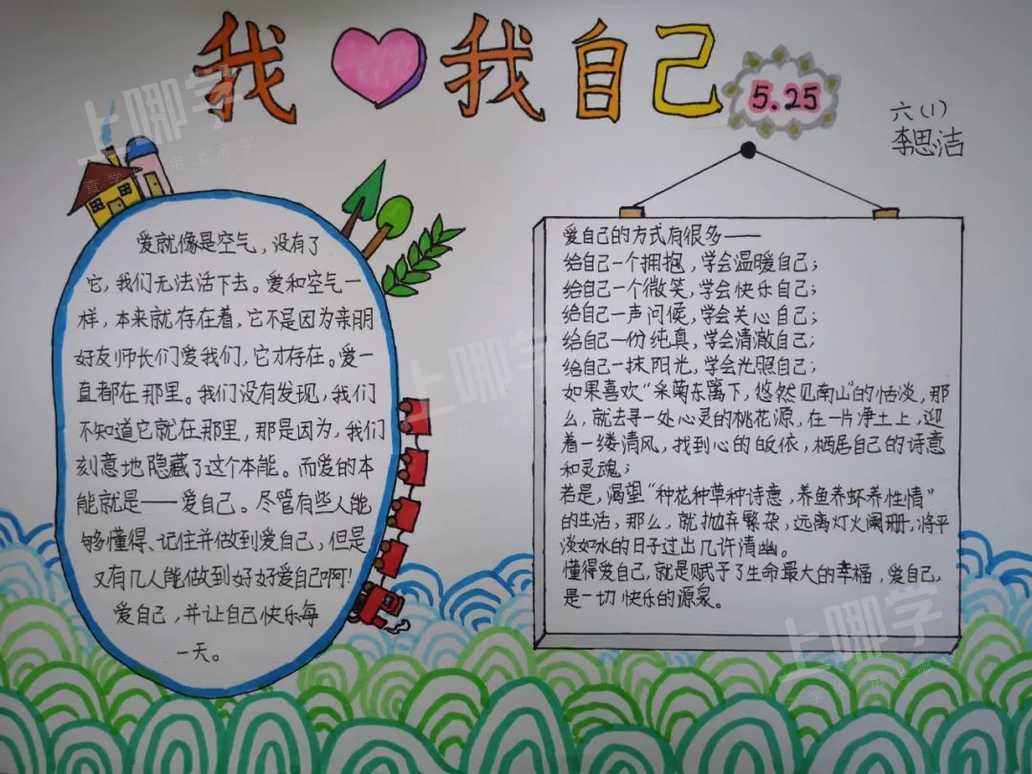 我❤我自己
5.25
六(1)
李思洁
爱就像是空气，没有了
它，我们无法活下去。爱和空气一
样，本来就存在着，它不是因为亲朋
好友师长们爱我们，它才存在。爱一
直都在那里。我们没有发现，我们
不知道它就在那里，那是因为，我们
刻意地隐藏了这个本能。而爱的本
能就是——爱自己。尽管有些人能
够懂得、记住并做到爱自己，但是
又有几人能做到好好爱自己啊！
爱自己，并让自己快乐每
一天。
爱自己的方式有很多——
给自己一个拥抱，学会温暖自己；
给自己一个微笑，学会快乐自己；
给自己一声问候，学会关心自己；
给自己一份纯真，学会清澈自己；
给自己一抹阳光，学会光照自己；
如果喜欢“采菊东篱下，悠然见南山”的恬淡，那
么，就去寻一处心灵的桃花源，在一片净土上，迎
着一缕清风，找到心的皈依，栖居自己的诗意
和灵魂；
若是，渴望“种花种草种诗意，养鱼养虾养性情”
的生活，那么，就抛弃繁杂，远离灯火阑珊，将平
淡如水的日子过出几许清幽。
懂得爱自己，就是赋予了生命最大的幸福，爱自己，
是一切快乐的源泉。
上哪学
上哪学
上哪学